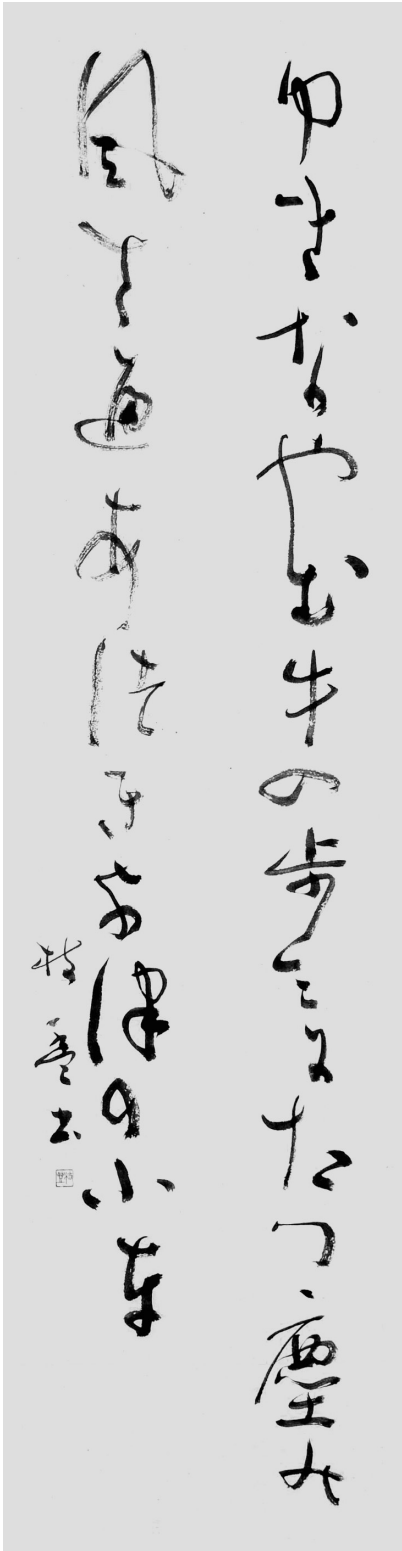 ゆきなやむ牛の歩みにたつ塵の
風さへあつきな津の小車
書